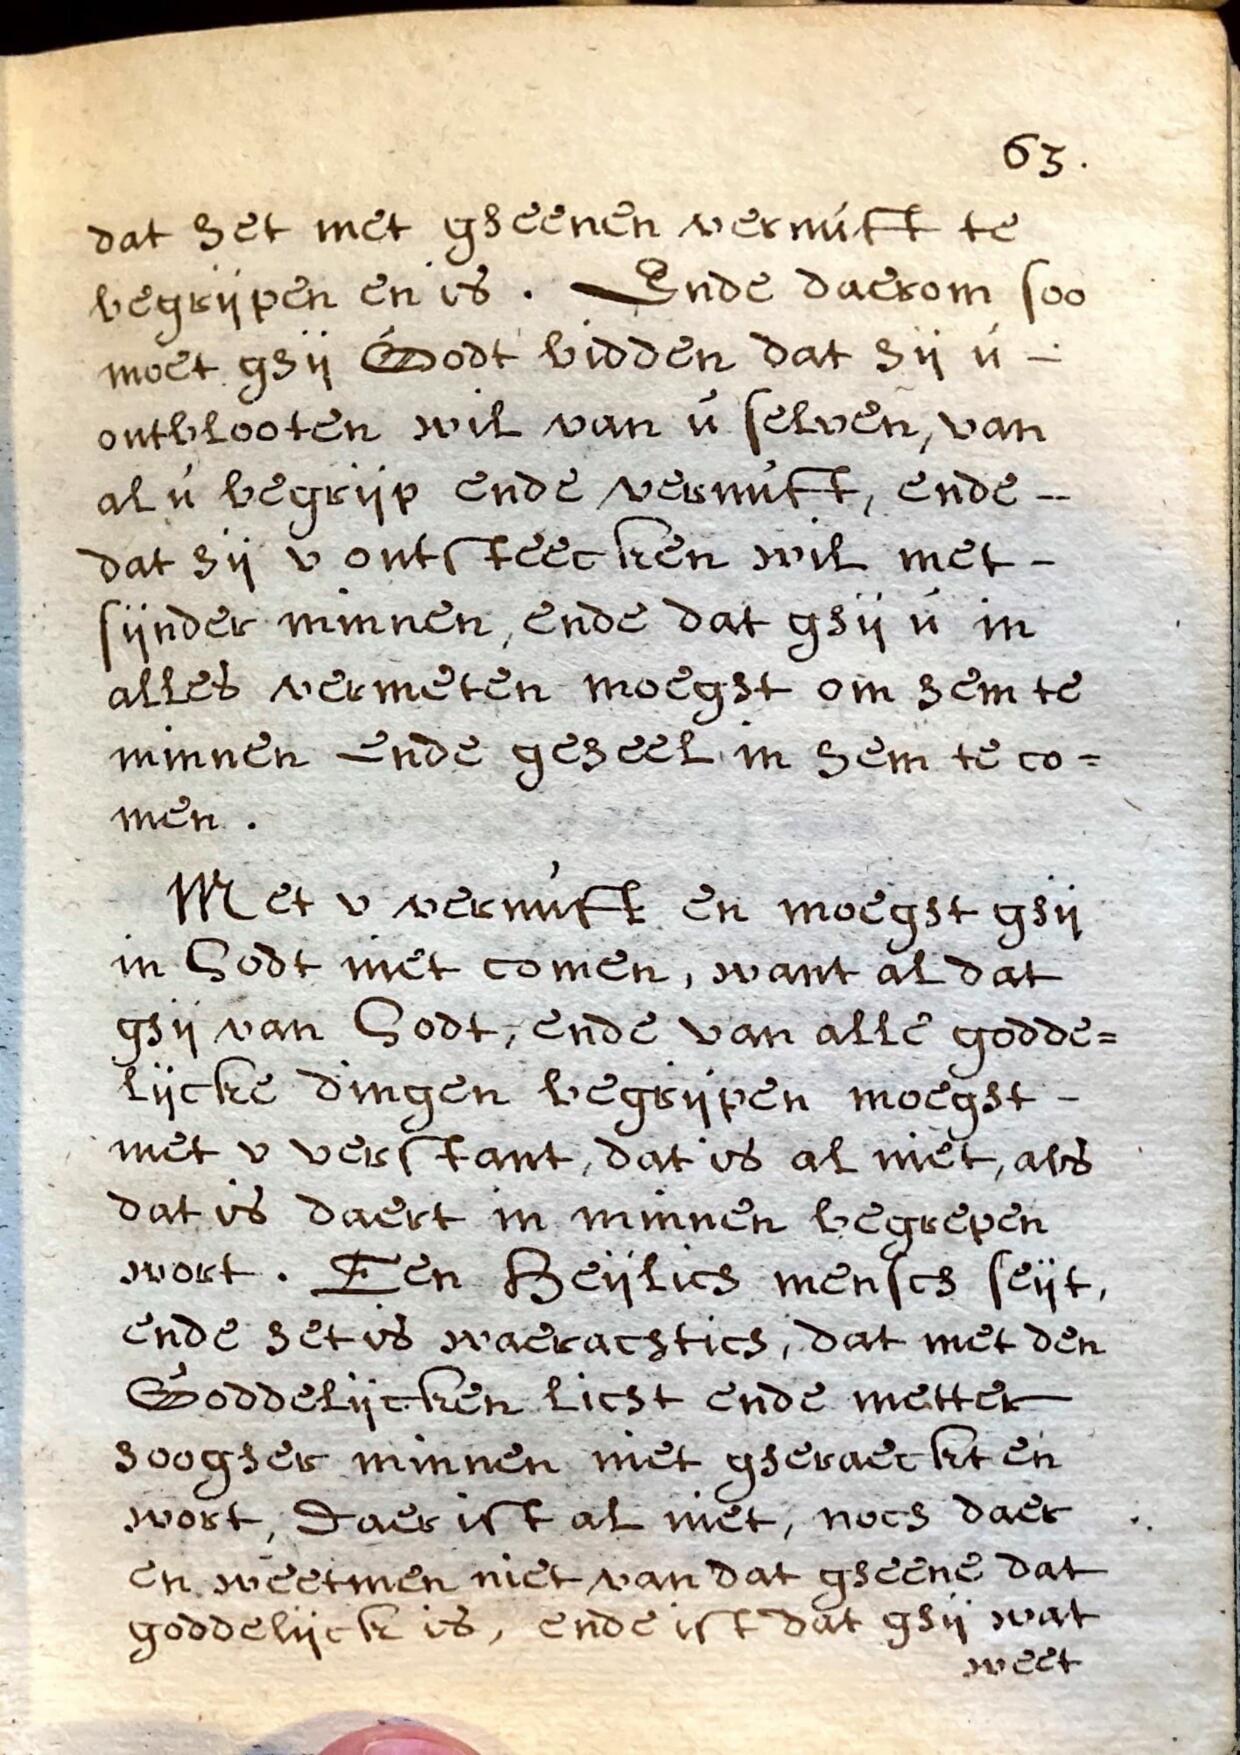 63.
dat het met gheenen vernúft te
begrijpen en is. Ende daerom soo
moet ghij Godt bidden dat hij ú -
ontblooten wil van ú selven, van
al ú begrijp ende vernúft, ende --
dat hij v ontsteecken wil met -
sijnder minnen, ende dat ghij ú in
alles vermeten moeght om hem te
minnen ende geheel in hem te co=
men.
Met v vernúft en moeght ghij
in Godt niet comen, want al dat
ghij van Godt, ende van alle godde=
lijcke dingen begrijpen moeght -
met v verstant, dat is al niet, als
dat is daert in minnen begrepen
wort. Een Heijlich mensch seijt,
ende het is waerachtich, dat met den
Goddelijcken licht ende metter
hoogher minnen niet gheraeckt en
wort, daer ist al niet, noch daer
en weetmen niet van dat gheene dat
goddelijck is, ende ist dat ghij wat
weet